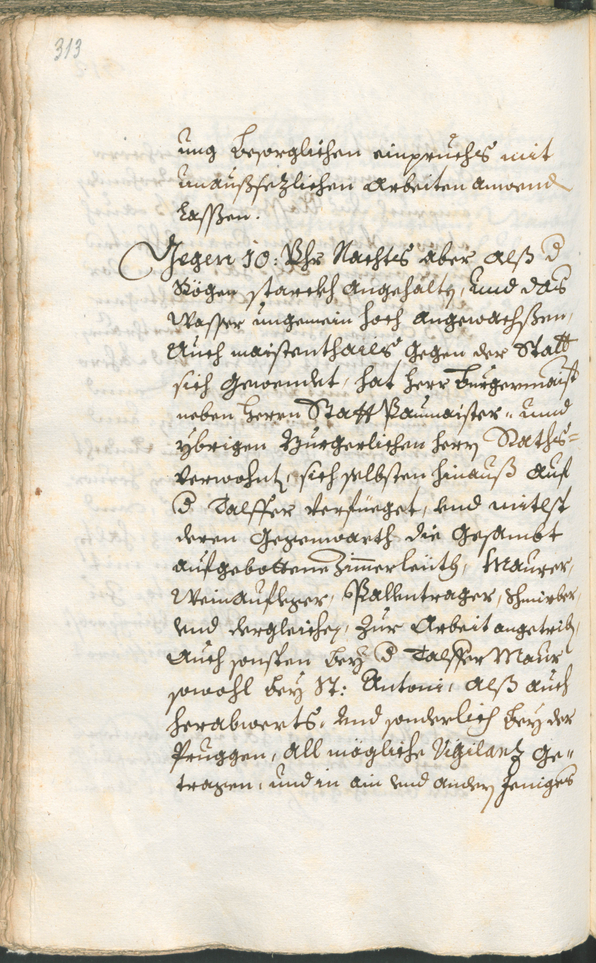 313
ung besorglichen einpruchs mit
unaußsezlichen Arbeiten anwend
lassen.
Gegen 10: Uhr Nachts aber alß d
Rögen starckh angehalten, und das
Wasser ungemein hoch angewachßen,
Auch maistenthails gegen der Statt
sich gewendet, hat herr Burgermaist
neben herrn Statt Paumaister, und
ybrigen Burgerlichen herrn Raths-
verwohnt, sich selbsten hinauß auf
d Talffer verfüeget, und mitlst
deren Gegenwarth die Gesambt
aufgebottene Zimmerleüth, Maurer,
Weinaufleger, Pallentrager,
und dergleichen, zur Arbeit angetrib,
Auch sonsten bey d Talffer Maur
sowohl bey St: Antoni, alß auch
herabwerts, und sonderlich bey der
Pruggen, all mögliche Vigilanz ge-
tragen, und in ain und andern jeniges